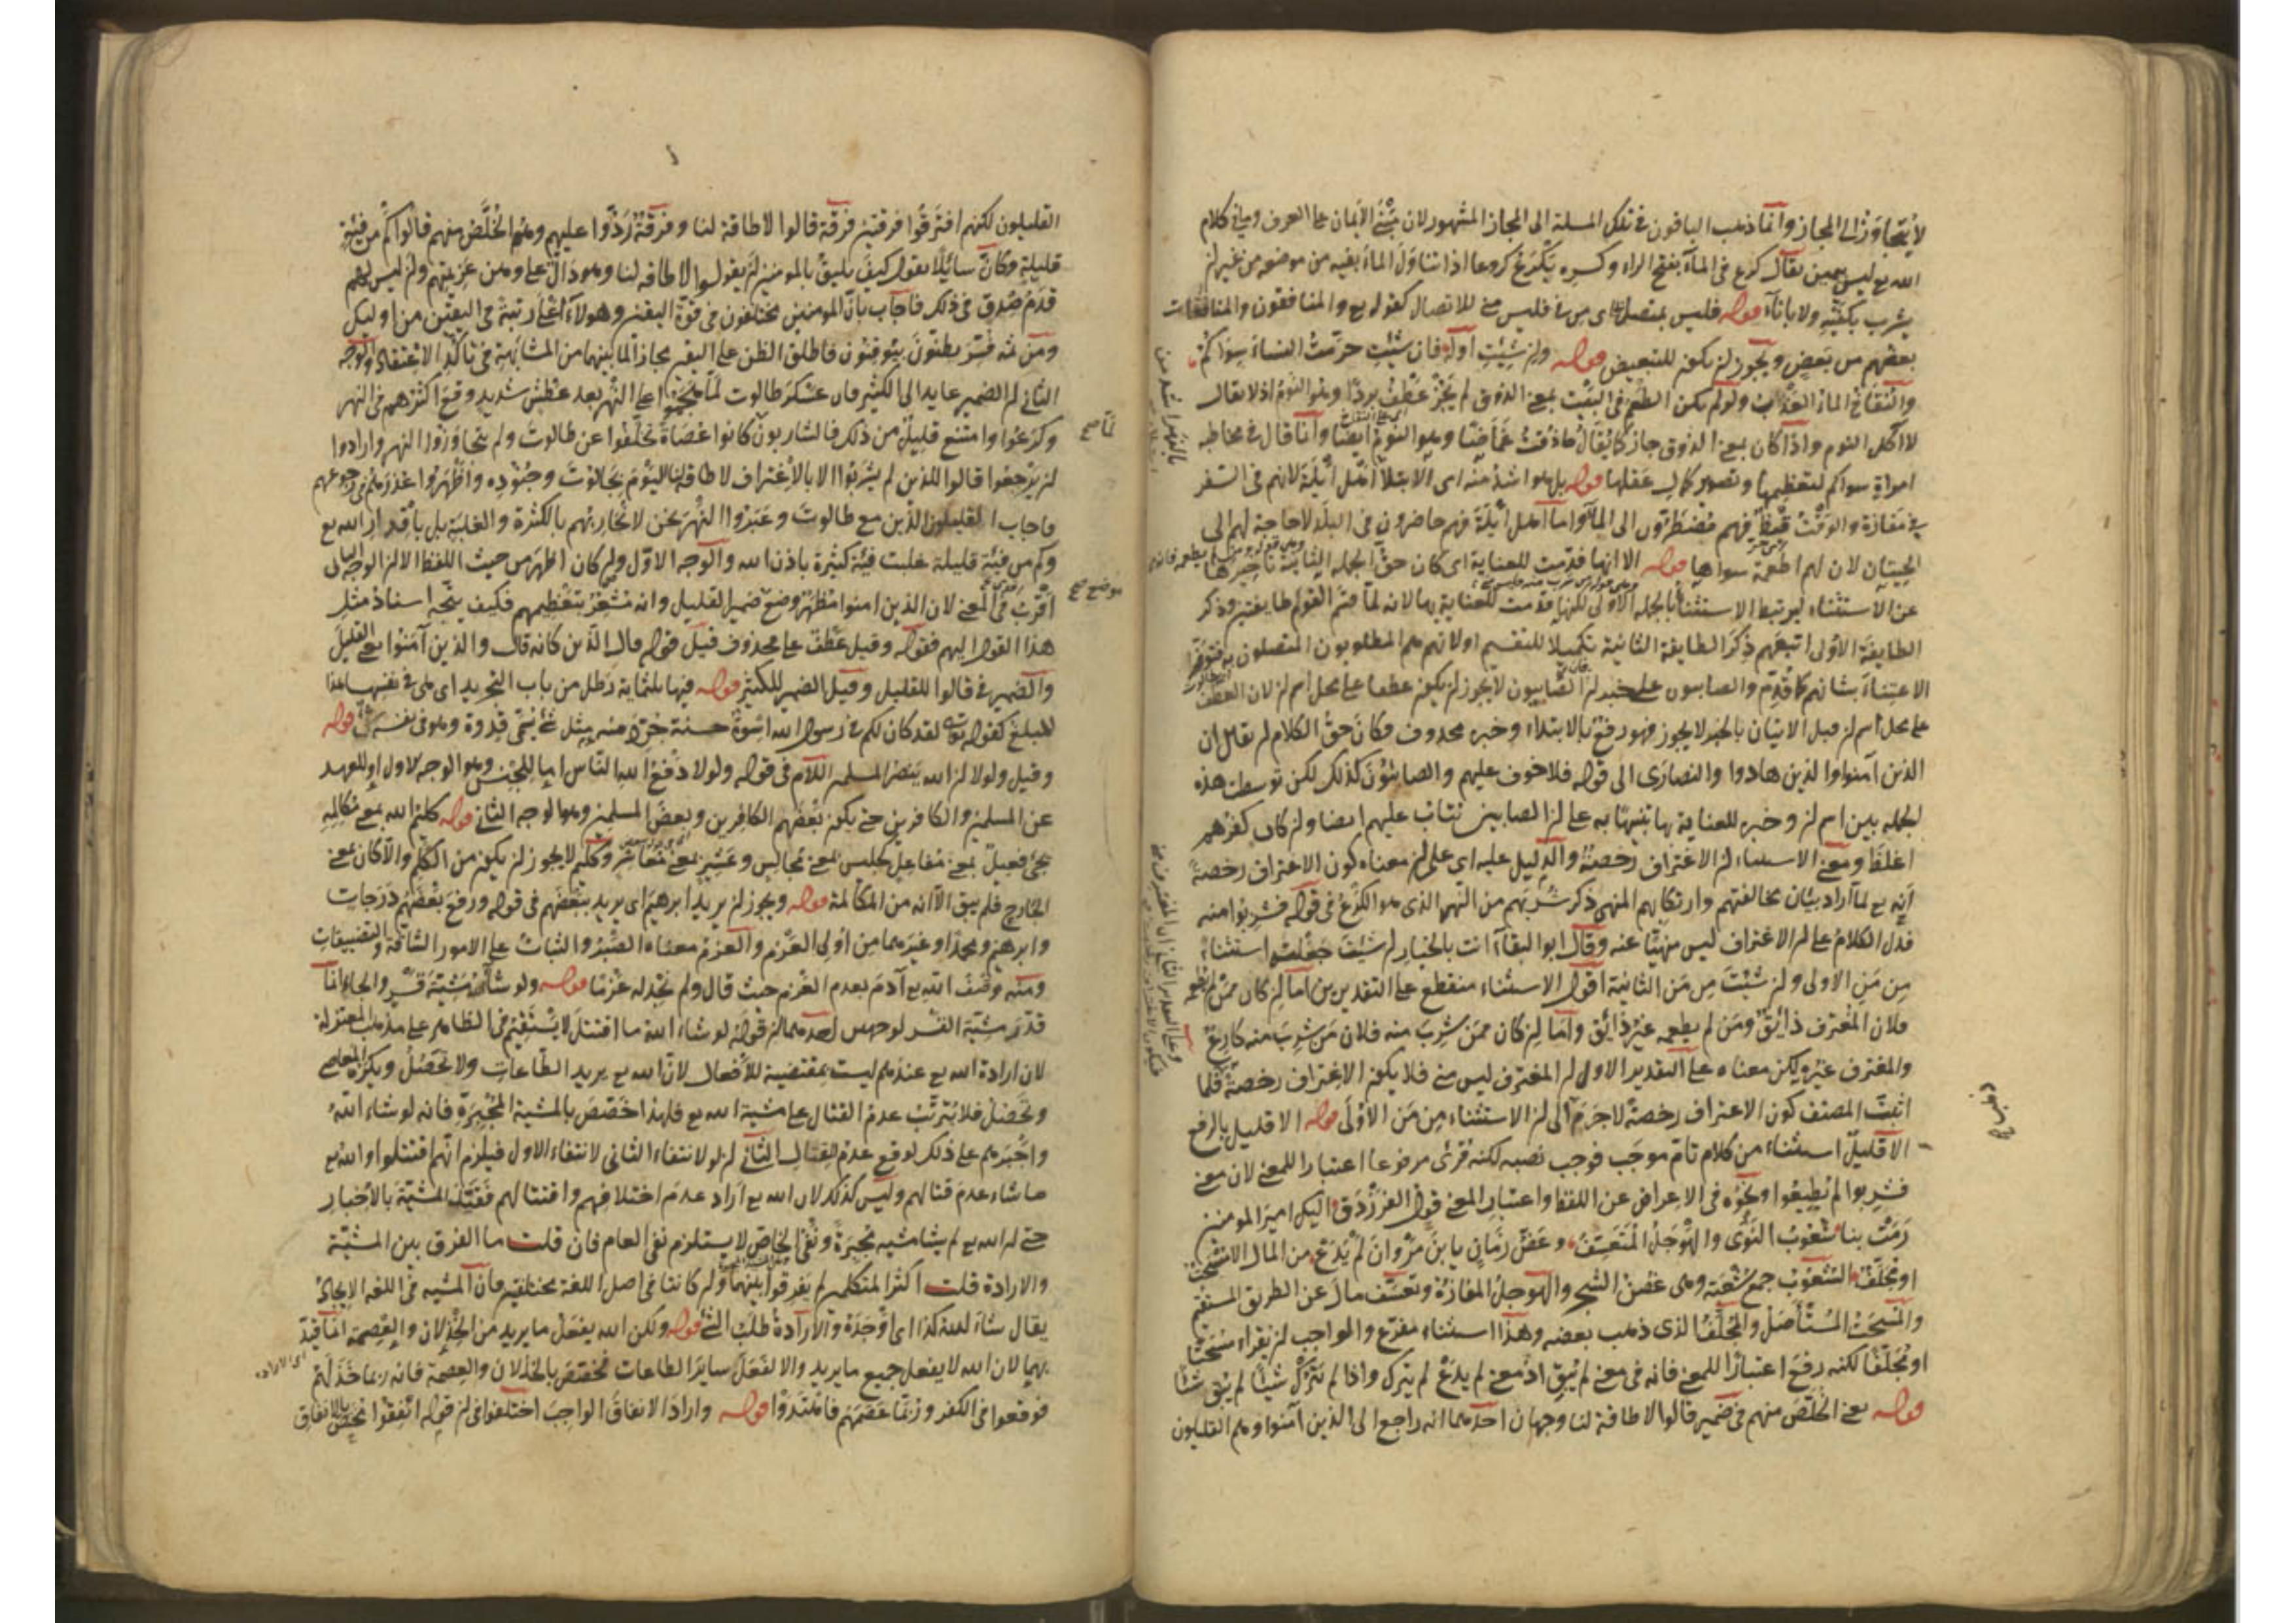 لا يتجاوز الى المجاز وانما ذهب الباقون في تلك المسلة الى المجاز المشهور لان مبنى الايمان على العرف ومبانى كلام
الله تع ليس يمين يقال كرع في الماء بفتح الراء وكسره يكرع كروعا اذا تناول الماء بفيه من موضعه من غير ان
يشرب بكفيه ولا باناء قوله فليس بمتصل بى من في فليس مني للاتصال كقوله تع والمنافقون والمنافقات
بعضهم من بعض ويجوز ان يكون للتبعيض قوله وان شئت اوله فان شئت حرمت النساء سواكم
والنقاخ الماء العذب ولو لم يكن الطعم في البيت بمعنى الذوق لم يجز عطف بردا وهو النوم اذ لا يقال
لا اكل النوم واذا كان بمعنى الذوق جاز كما يقال ما ذقت غماضا وهو النوم ايضا وانما قال في مخاطبة
امراة سواكم لتعظيمها وتصوير كمال عقلها قوله بل هو اشد منه اى الابتلا اهل ايلة لانهم في السفر
في مفازة والوقت قيظ فهم مضطرون الى الماء واما اهل ايلة فهم حاضرون في البلد لا حاجة لهم الى
الحيتان لان لهم اطعمة سواها قوله الا انها قدمت للعناية اى كان حق الجملة الثانية تاخيرها
عن الاستثناء ليرتبط الاستثناء بالجملة الاولى لكنها قدمت للعناية بها لانه لما قسم القوم طايفتين وذكر
الطايفة الاولى اتبعهم ذكر الطايفة الثانية تكميلا للتقسيم اولانهم هم المطلوبون المتصلون به فتوفر
الاعتناء بشانهم كما قدم والصابون على خبر ان الصابيون لا يجوز ان يكون عطفا على محل اسم ان لان العطف
على محل اسم ان قبل الاتيان بالخبر لا يجوز فهو رفع بالابتداء وخبره محذوف وكان حق الكلام ان يقال ان
الذين آمنوا والذين هادوا والنصارى الى قوله فلا خوف عليهم والصابئون كذلك لكن توسطت هذه
الجملة بين اسم ان وخبره للعناية بها تنبيها به على ان الصابيين يتاب عليهم ايضا وان كان كفرهم
اغلظ ومعنى الاستثناء ان الاغتراف رخصة والدليل عليه اى على ان معناه كون الاغتراف رخصة
انه تع لما اراد بيان مخالفتهم وارتكابهم المنهى ذكر شربهم من النهر الذى هو الكرع في قوله فشربوا منه
فدل الكلام على ان الاغتراف ليس منهيا عنه وقال ابو البقاء انت بالخيار ان شئت جعلته استثناء
من من الاولى وان شئت من من الثانية اقول الاستثناء منقطع على التقديرين اما ان كان ممن لم يطعمه
فلان المغترف ذائق ومن لم يطعمه غير ذائق واما ان كان ممن شرب منه فلان من شرب منه كارع
والمغترف غيره لكن معناه على التقدير الاول ان المغترف ليس مني فلا يكون الاغتراف رخصة فلما
اثبت المصنف كون الاغتراف رخصة لاجرم الى ان الاستثناء من من الاولى قوله الا قليل بالرفع
الا قليلا استثناء من كلام تام موجب فوجب نصبه لكنه قرئ مرفوعا اعتبارا للمعنى لان معنى
فشربوا لم يطيعوا ونحوه في الاعراض عن اللفظ واعتبار المعنى قول الفرزدق اليك امير المؤمنين
رمت بنا شعوب النوى والهوجل المتعسف وعض زمان يا بن مروان لم يدع من المال الا مسحت
او مجلف الشعوب جمع شعبة وهى غصن الشجر والهوجل المفازة وتعسف مال عن الطريق المستقيم
والمسحت المستأصل والمجلف الذى ذهب بعضه وهذا استثناء مفرغ والواجب ان يقراء مسحتا
او مجلفا لكنه رفع اعتبارا للمعنى فانه في معنى لم يبق اذ معنى لم يدع لم يترك واذا لم يترك شيئا لم يبق شئا
قوله يعنى الخلص منهم في ضمير قالوا لا طاقة لنا وجهان احدهما انه راجع الى الذين آمنوا وهم القليلون
القليلون لكنهم افترقوا فرقتين فرقة قالوا لا طاقة لنا وفرقة ردوا عليهم ومنهم الخلص منهم قالوا كم من فئة
قليلة وكان سائلا يقول كيف يليق بالمومنين ان يقولوا لا طاقة لنا وهو دال على وهن عزيمتهم وان ليس لهم
قدم صدق في ذلك فاجاب بان المومنين مختلفون في قوة اليقين وهولاء اعلى رتبة في اليقين من اوليك
ومن ثمه فسر يظنون بيوقنون فاطلق الظن على اليقين مجازا لما بينهما من المشابهة في تاكد الاعتقاد والوجه
الثاني ان الضمير عايد الى الكثير فان عسكر طالوت لما هجموا على النهر بعد عطش شديد وقع اكثرهم في النهر
وكرعوا وامتنع قليل من ذلك فالشاربون كانوا عصاة تخلفوا عن طالوت ولم يتجاوزوا النهر وارادوا
ان يرجعوا قالوا للذين لم يشربوا الا بالاغتراف لا طاقة لنا اليوم بجالوت وجنوده واظهروا عذرهم في رجوعهم
فاجاب القليلون الذين مع طالوت وعبروا النهر نحن لا نحاربهم بالكثرة والغلبة بل باقدار الله تع
وكم من فئة قليلة غلبت فئة كثيرة باذن الله والوجه الاول وان كان اظهر من حيث اللفظ الا ان الوجه الثاني
اقرب في المعنى لان الذين امنوا مظهر وضع ضمير القليل وانه مشعر بتعظيمهم فكيف يتجه اسناد مثل
هذا القول اليهم فقوله وقيل عطف على محذوف قبل قوله قال الذين كانه قال والذين آمنوا يعنى القليل
والضمير في قالوا للقليل وقيل الضمير للكثير قوله فيها ثلثماية رطل من باب التجريد اى هى في نفسها هذا
المبلغ كقوله لقد كان لكم في رسول الله اسوة حسنة
وقيل ولولا ان الله ينصر المسلمين اللام في قوله ولولا دفع الله الناس اما للجنس وهو الوجه الاول او للعهد
عن المسلمين والكافرين حتى يكون بعضهم الكافرين وبعض المسلمين وهو الوجه الثاني قوله كليم الله بمعنى مكالمه
يجئ فعيل بمعنى مفاعل كجليس بمعنى مجالس وعشير بمعنى معاشر وكليم لا يجوز ان يكون من الكلم والا كان معنى
الجارح فلم يبق الا انه من المكالمة قوله ويجوز ان يريد ابراهيم اى يريد ببعضهم في قوله ورفع بعضهم درجات
وابرهيم ومحمدا وغيرهما من اولى العزم والعزم معناه الصبر والثبات على الامور الشاقة والتضييقات
ومنه وصف الله تع آدم بعدم العزم حيث قال ولم نجد له عزما قوله ولو شاء الله مشيئة قسر والجاء انما
قدر مشية القسر لوجهين احدهما ان قوله لو شاء الله ما اقتتل لا يستقيم في الظاهر على مذهب المعتزلة
لان ارادة الله تع عندهم ليست بمقتضية للافعال لان الله تع يريد الطاعات ولا تحصل ويكره المعاصى
وتحصل فلا يترتب عدم القتال على مشية الله تع فلهذا خصص بالمشية المجبرة فانه لو شاء الله
واجبرهم على ذلك لوقع عدم القتال الثاني ان لو لانتفاء الثاني لانتفاء الاول فيلزم انهم اقتتلوا والله تع
ما شاء عدم قتالهم وليس كذلك لان الله تع اراد عدم اختلافهم واقتتالهم فقيد المشية بالاخبار
حتى ان الله تع لم يشا مشية مجبرة ونفى الخاص لا يستلزم نفى العام فان قلت ما الفرق بين المشية
والارادة قلت اكثر المتكلمين لم يفرقوا بينهما وان كانتا في اصل اللغة مختلفتين فان المشيه في اللغه الايجاد
يقال شاء الله كذا اى اوجده والارادة طلب الشئ قوله ولكن الله يفعل ما يريد من الخذلان والعصمة
بهما لان الله لا يفعل جميع ما يريد والا لفعل ساير الطاعات فخصص بالخذلان والعصمة فانه ربما خذلهم
فوقعوا في الكفر وربما عصمهم فاهتدوا قوله واراد الانفاق الواجب اختلفوا في ان قوله انفقوا يختص بالانفاق